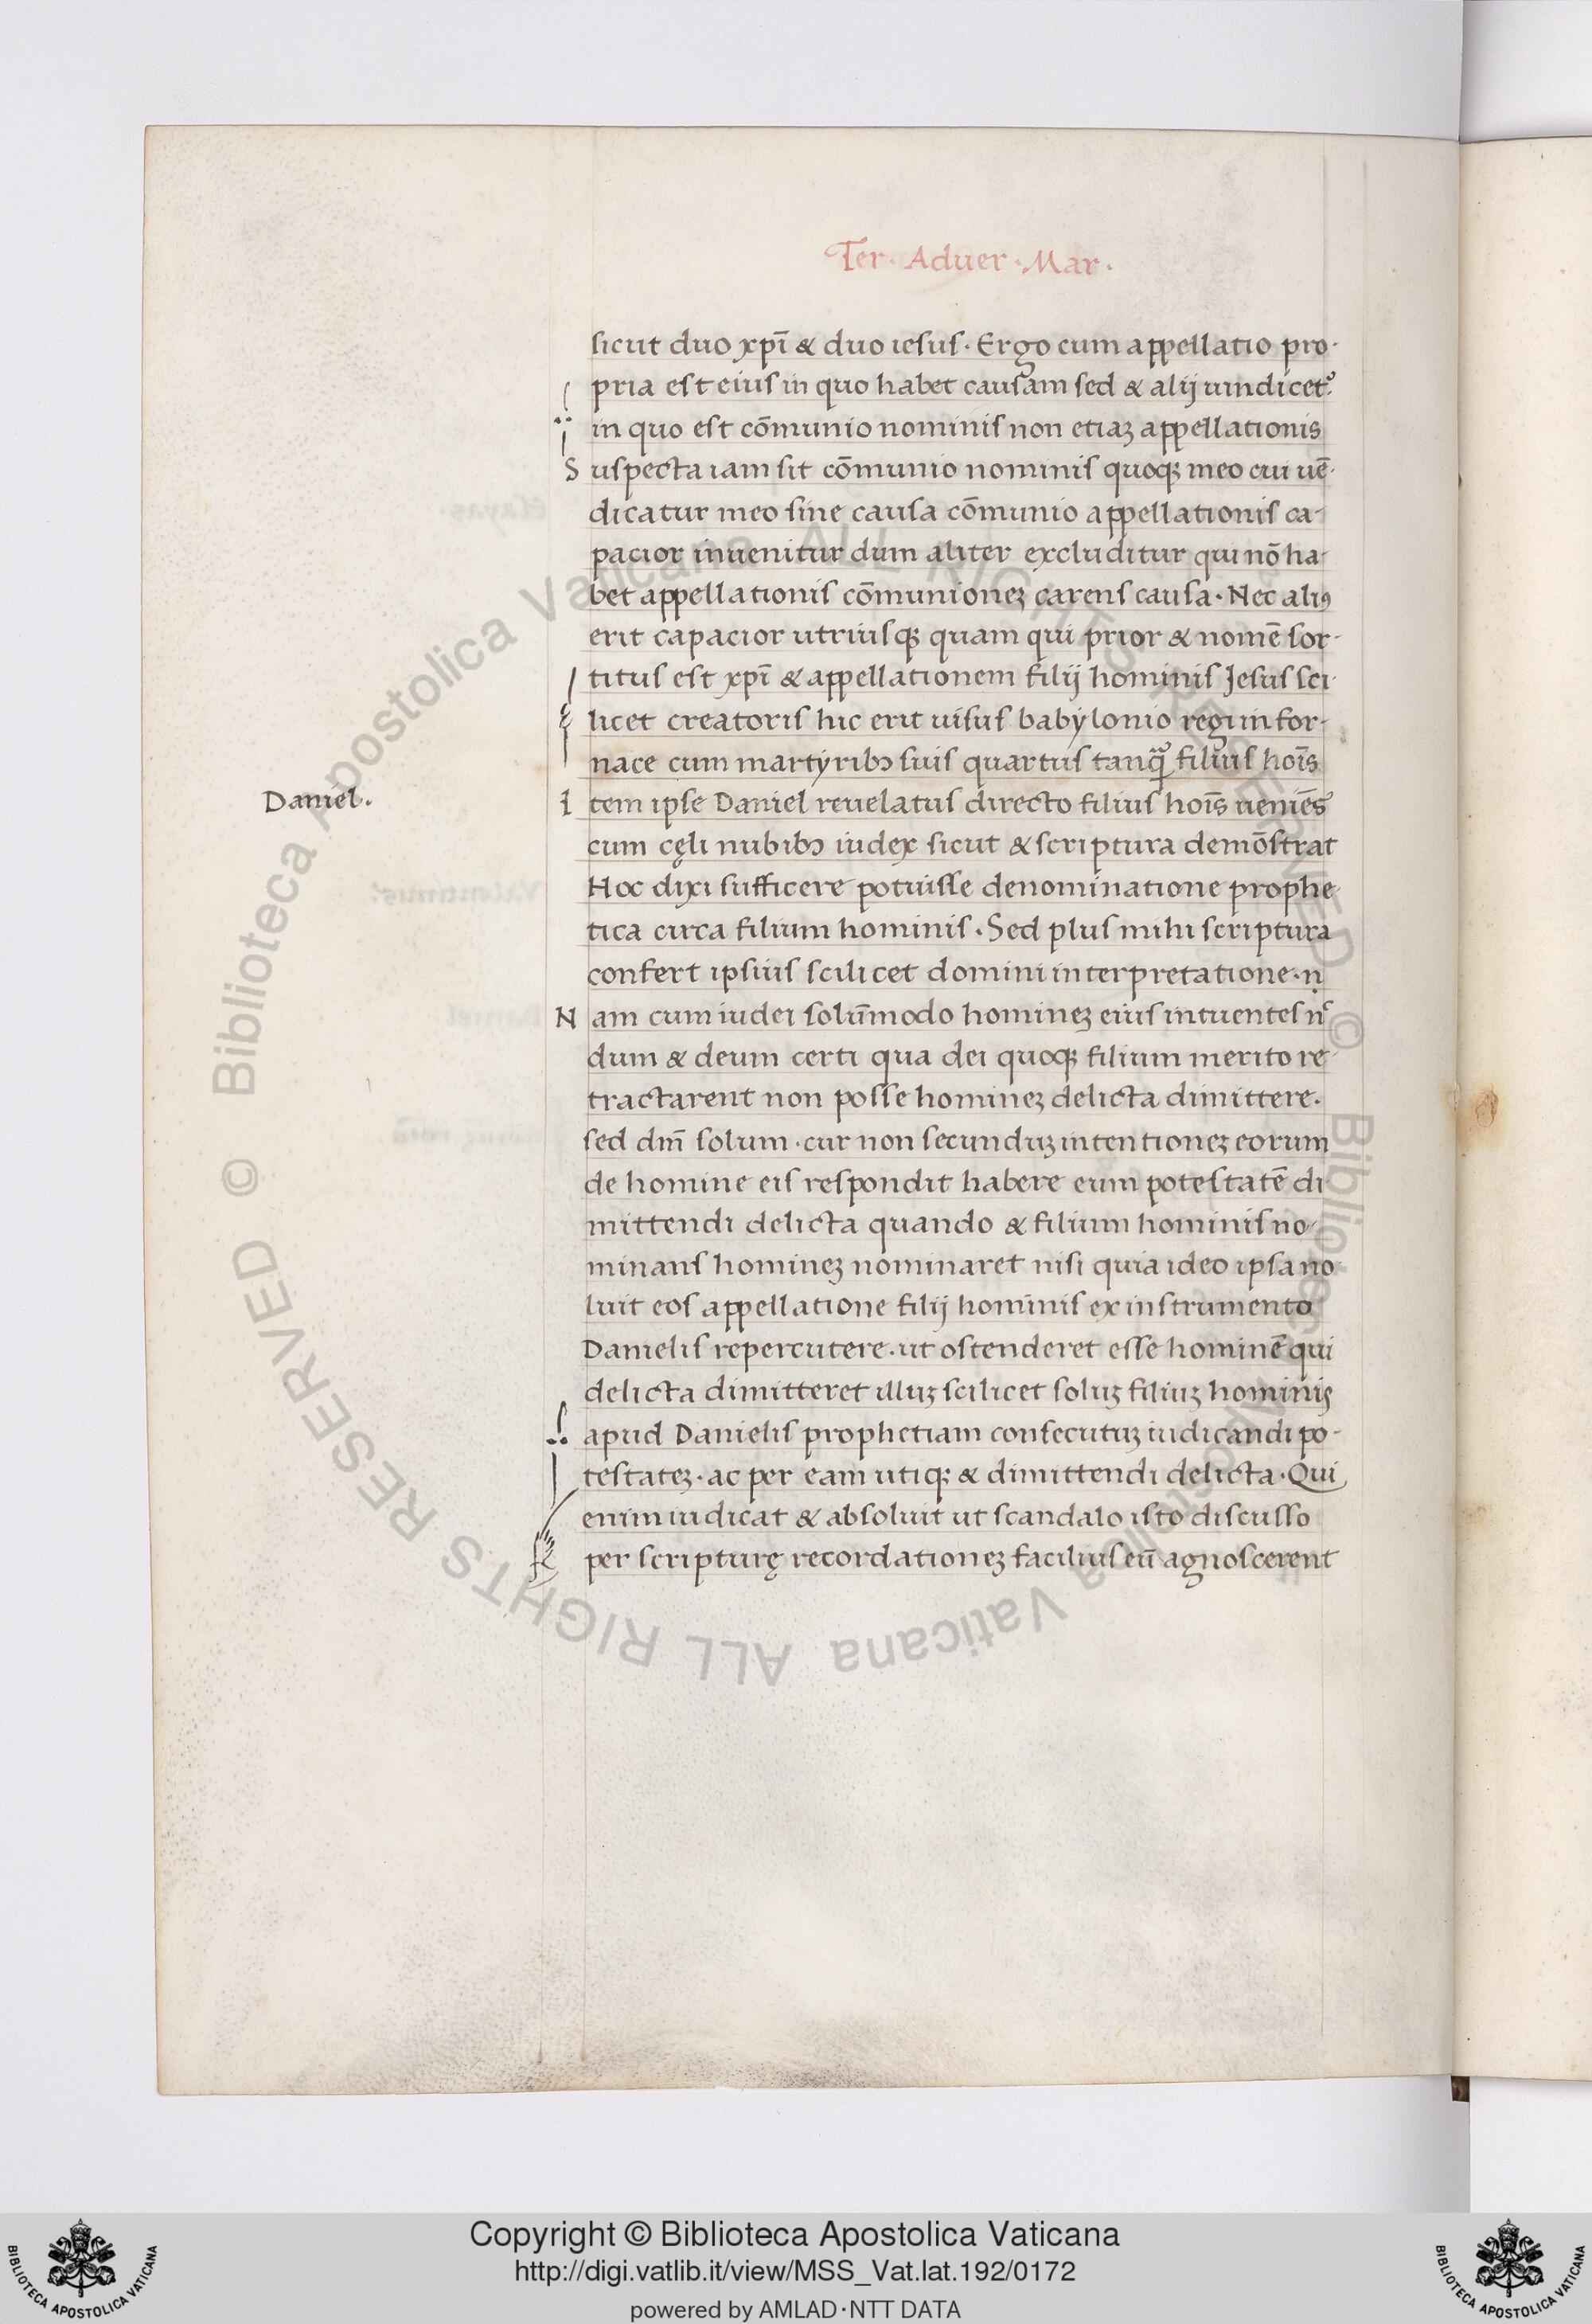 Ter · Aduer · Mar ·
sicut duo xpī & duo iesus · Ergo cum appellatio pro-
pria est eius in quo habet causam sed & alij uindicet᷒
in quo est cōmunio nominis non etiaꝫ appellationis
Suspecta iam sit cōmunio nominis quoqꝫ meo cui uē-
dicatur meo sine causa cōmunio appellationis ca-
pacior inuenitur dum aliter excluditur qui nō ha-
bet appellationis cōmunioneꝫ carens causa · Nec aliꝯ
erit capacior utriusqꝫ quam qui prior & nomē sor-
titus est xpī & appellationem filij hominis Jesus sci-
licet creatoris hic erit uisus babylonio regi in for-
nace cum martyribꝫ suis quartus tanqͣ filius hoīs
Daniel.
Item ipse Daniel reuelatus directo filius hoīs ueniēs
cum cęli nubibꝫ iudex sicut & scriptura demōstrat
Hoc dixi sufficere potuisse denominatione prophe-
tica circa filium hominis · Sed plus mihi scriptura
confert ipsius scilicet domini interpretatione · ṇ
Nam cum iudei solūmodo homineꝫ eius intuentes n
dum & deum certi qua dei quoqꝫ filium merito re-
tractarent non posse homineꝫ delicta dimittere.
sed dm̄ solum · cur non secunduꝫ intentioneꝫ eorum
de homine eis respondit habere eum potestatē di-
mittendi delicta quando & filium hominis no-
minans homineꝫ nominaret nisi quia ideo ipsa no-
luit eos appellatione filij hominis ex instrumento
Danielis repercutere · ut ostenderet esse hominē qui
delicta dimitteret illuꝫ scilicet soluꝫ filiuꝫ hominis
apud Danielis prophetiam consecutuꝫ iudicandi po-
testateꝫ · ac per eam utiqꝫ & dimittendi delicta · Qui
enim iudicat & absoluit ut scandalo isto discusso
per scripturę recordationeꝫ facilius eū agnoscerent
© Biblioteca Apostolica Vaticana ALL RIGHTS RESERVED © Biblioteca Apostolica Vaticana ALL RIGHTS RESERVED
Copyright © Biblioteca Apostolica Vaticana
http://digi.vatlib.it/view/MSS_Vat.lat.192/0172
powered by AMLAD·NTT DATA
BIBLIOTECA APOSTOLICA VATICANA
BIBLIOTECA APOSTOLICA VATICANA